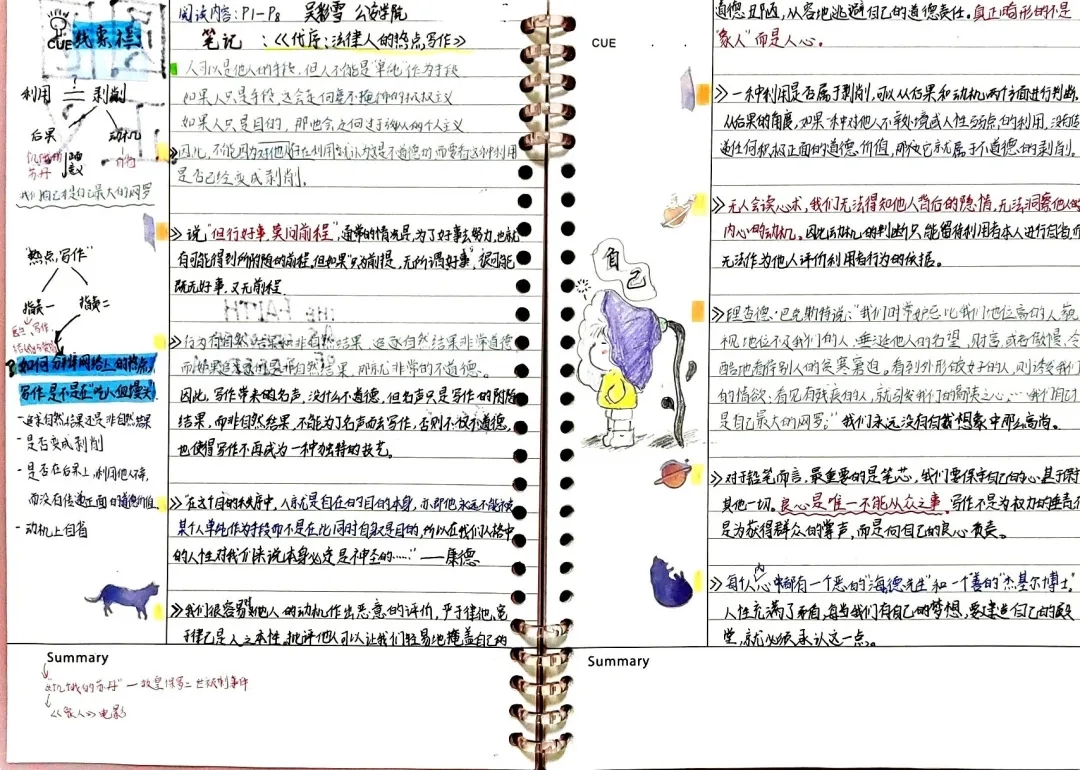 CUE 线索栏
利用 = 剥削
?
后果 动机
饥饿的苏丹 自省
我们自己才是自己最大的网罗
"热点写作"
指责一 指责二
如何分辨网络上的热点
写作是不是在"吃人血馒头"
·追求自然结果还是非自然结果
- 是否变成剥削
- 是否在后果上,利用他人不幸,
而没有传递正面的道德价值
- 动机上自省
阅读内容:P1-P8 吴彩雪 公安学院
笔记:《代序:法律人的热点写作》
人可以是他人的手段,但人不能是"单纯"作为手段
如果人只是手段,这会走向毫不掩饰的极权主义
如果人只是目的,那也会走向过于強 的个人主义
》因此,不能因为对他人存在利用就认为这是不道德的而要看这种利用
是否已经变成剥削。
》说"但行好事,莫问前程",通常的情况是,为了好事去努力,也就
有可能得到所附随的前程,但如果只为前程,无所谓好事,很可能
既无好事,又无前程
》行为有自然结果和非自然结果,追逐自然结果非常道德
而如果追逐的是非自然结果,那就非常的不道德。
因此,写作带来的名声,没什么不道德,但名声只是写作的附随
结果,而非自然结果,不能为了名声而去写作,否则不仅不道德,
也使得写作不再成为一种独特的技艺。
》"在这个目的秩序中,人就是自在的目的本身,亦即他永远不能被
某个人单纯作为手段而不是在此同时自身是目的,所以在我们人格中
的人性对我们来说本身必定是神圣的……"——康德
》我们很容易对他人的动机作出恶意的评价,严于律他,宽
于律己是人之本性。批评他人可以让我们轻易地掩盖自己的
Summary
"饥饿的苏丹"—
《象人》电影
CUE
道德丑陋,从容地逃避自己的道德责任,真正畸形的不是
"象人"而是人心。
》一种利用是否属于剥削,可以从后果和动机两个方面进行判断,
从后果的角度,如果一种对他人不幸处境或人性弱点的利用,没有传
递任何积极正面的道德价值,那这它就属于不道德的剥削。
》无人会读心术,我们无法得知他人背后的隐情,无法洞察他人的
内心的动机。因此动机的判断只能留待利用者本人进行自省而
无法作为他人评价利用者行为的依据。
》理查德·巴克斯特说:"我们时常妒忌比我们地位高的人,藐
视地位不及我们的人,垂涎他人的名望、财富,或者傲慢、冷
酷地看待别人的贫寒窘迫。看到外形姣好的人,则诱发我们
的情欲,看见有残疾的人,就引发我们的鄙夷之心,…我们自己
是自己最大的网罗;"我们永远没有自我想象中那么高尚。
》对于铅笔而言,最重要的是笔芯,我们要保守自己的心,甚于保守
其他一切,良心是唯一不能从众之事。写作不是为权力的垂青
是为获得群众的掌声,而是向自己的良心负责。
》每个人内心中都有一个恶的"海德先生"和一个善的"杰基尔博士"。
人性充满了矛盾,每当我们有自己的梦想,要建造自己的殿
堂,就必须承认这一点。
负己
Summary